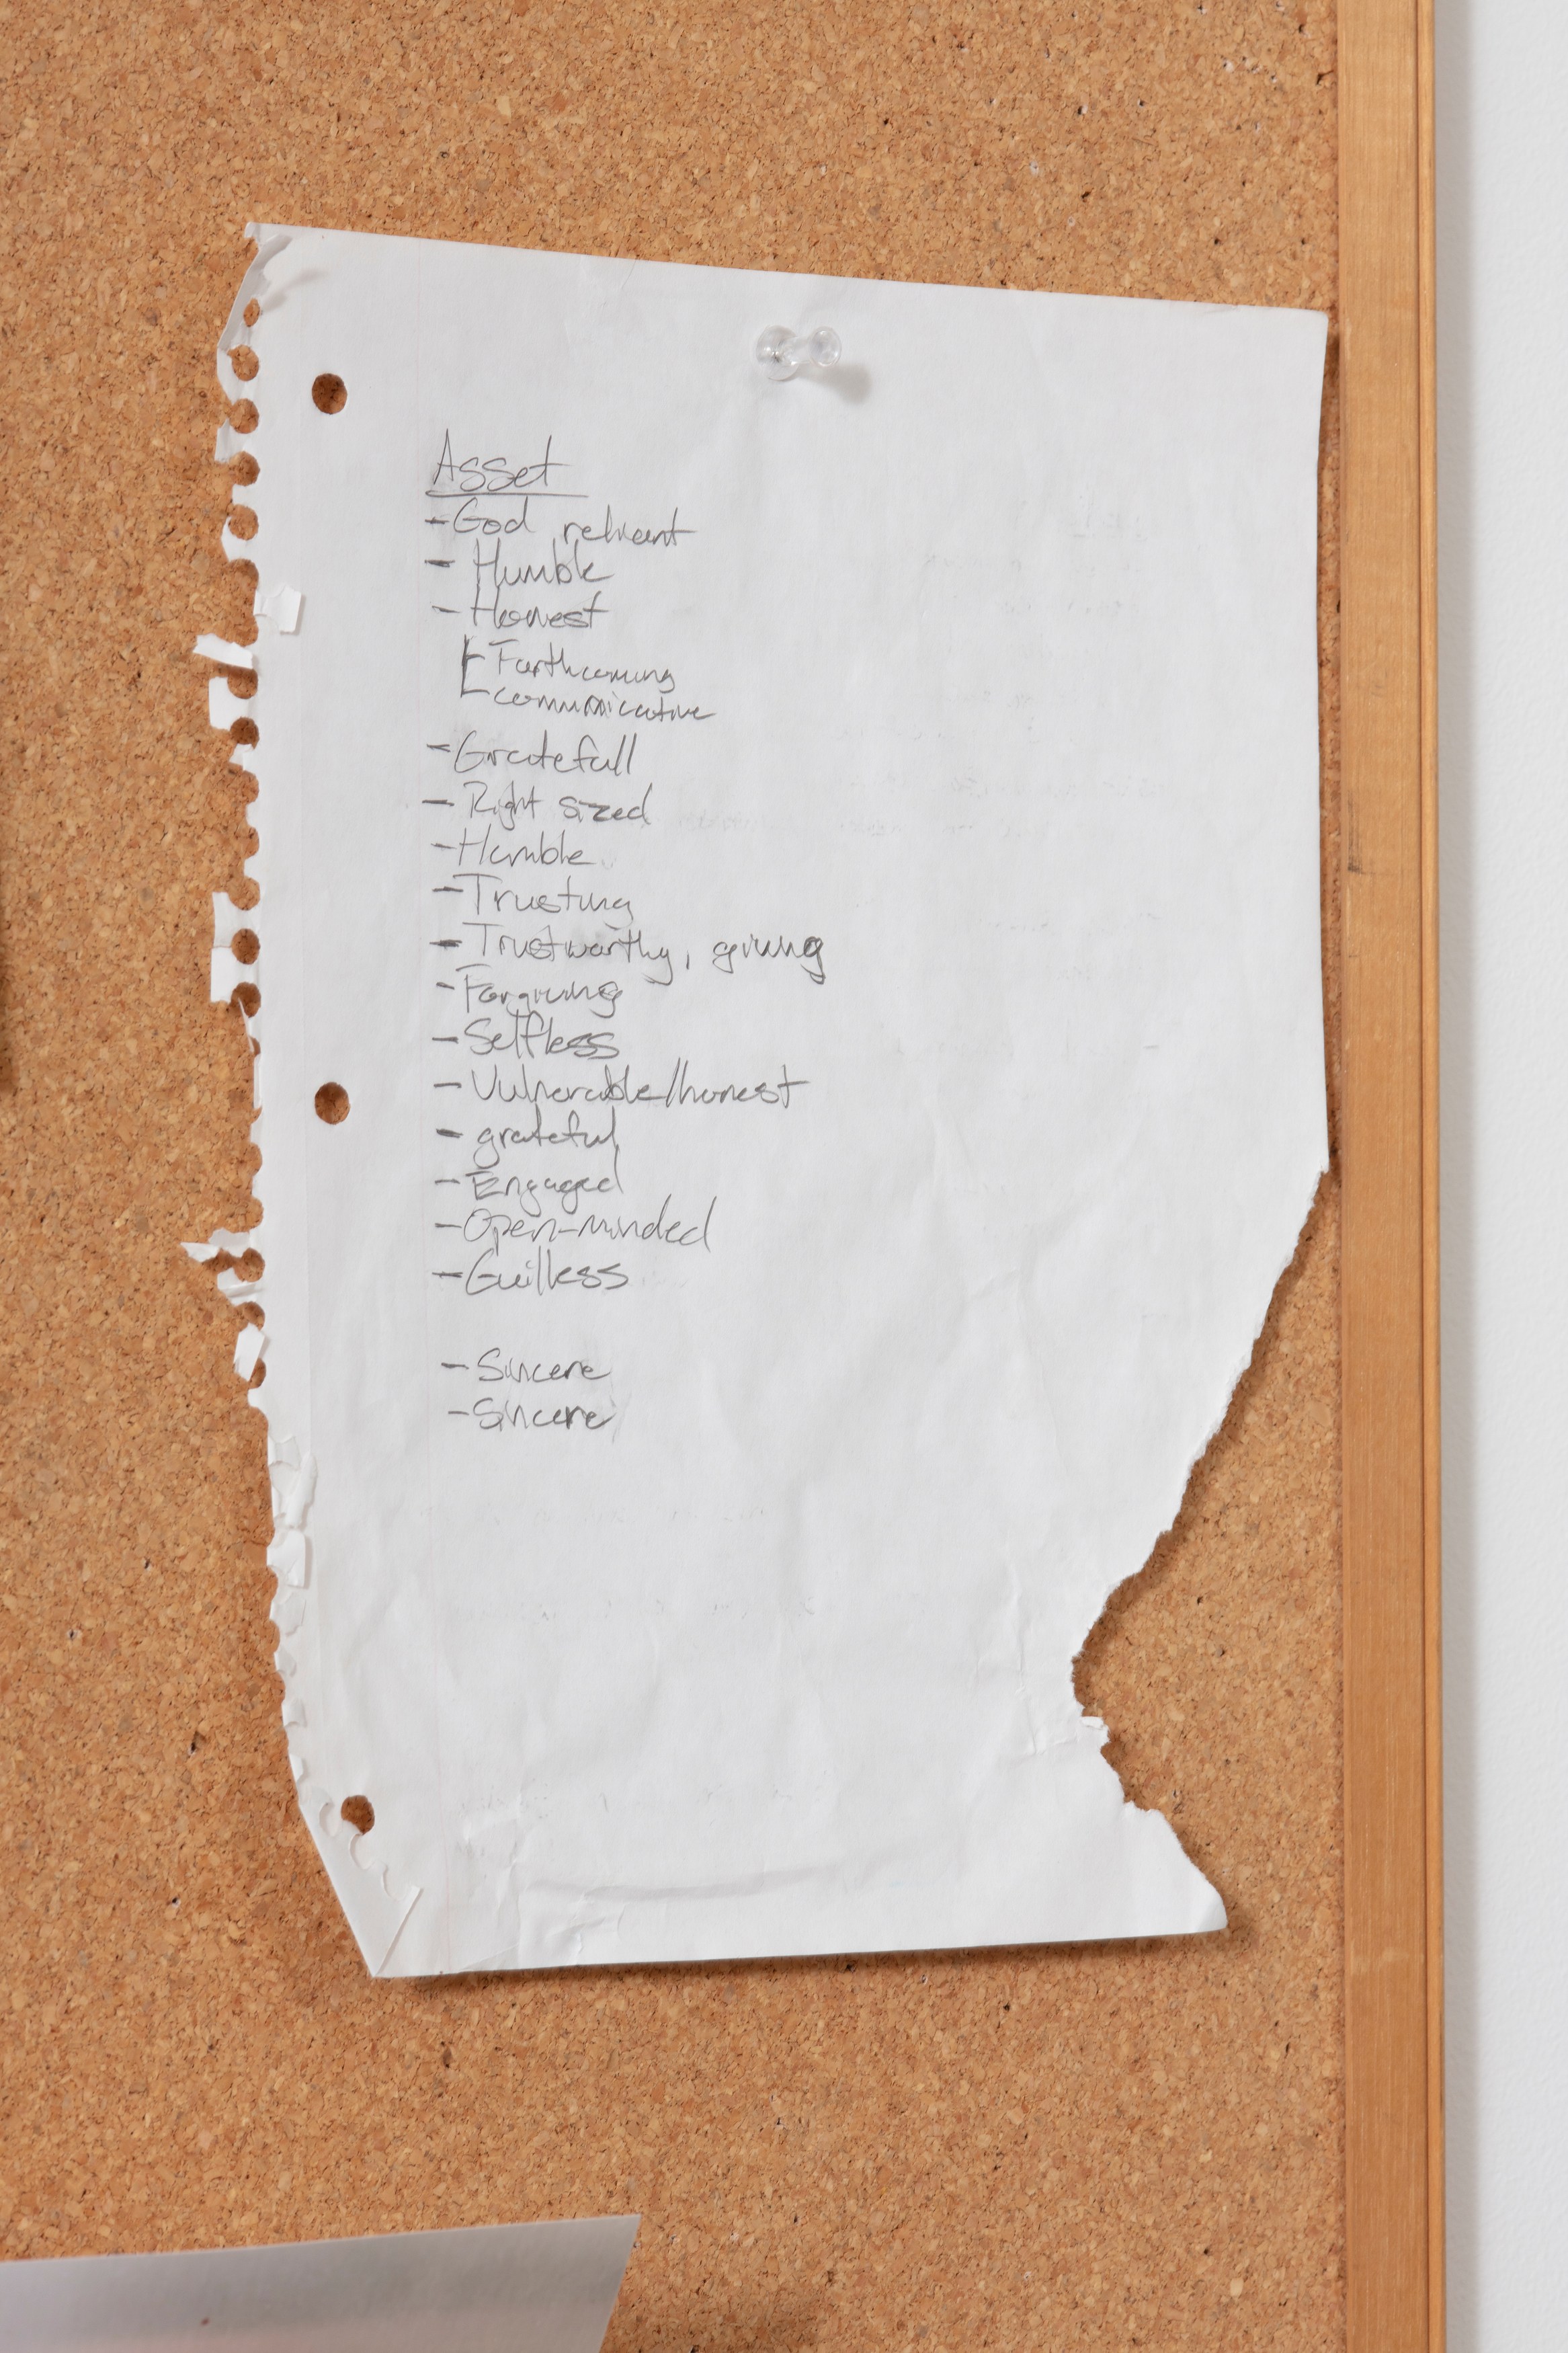 Asset
- God relient
- Humble
- Honest
- Forthcoming
- communicative
- Gratefull
- Right sized
- Humble
- Trusting
- Trustworthy, giving
- Forgiving
- Selfless
- Vulnerable/honest
- grateful
- Engaged
- Open-minded
- Guilless
- Sincere
- Sincere